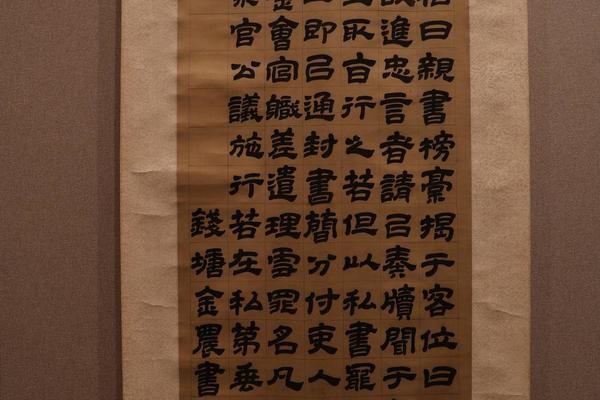 曰親書榜稾揭于客位曰
進忠言者請㠯奏牘聞于
取旨行之若但以私書
即㠯通封書簡分付吏人
會官職差遣理雪罪名凡
官公議施行若在私第垂
錢塘金農書